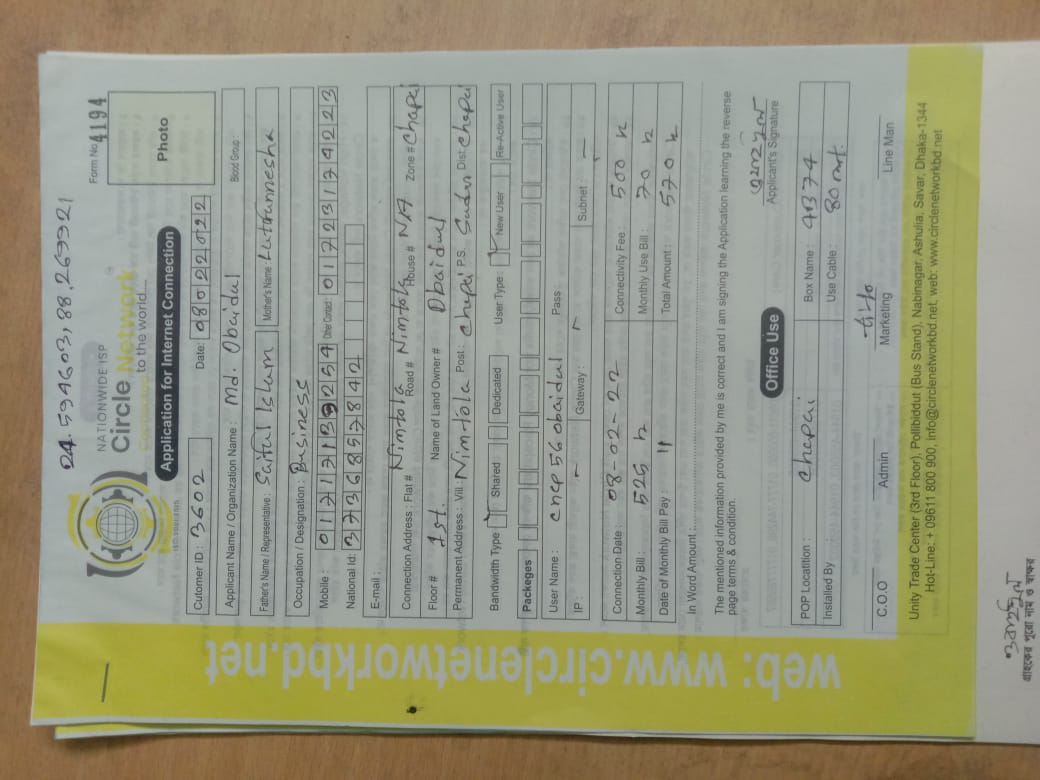 24.594603, 88.269921
NATIONWIDE ISP
Circle Network
to the world...
Form No 4194
Photo
Application for Internet Connection
Cutomer ID : 3602
Date: 08022022
Applicant Name / Organization Name : Md. Obaidul
Blood Group:
Father's Name / Representative : Saiful Islam
Mother's Name
Occupation / Designation : Business
Mobile :
Other Contact : 01723174223
National Id: 3736857842
E-mail :
Connection Address : Flat # Nimtola Road # Nimtola House # NA Zone # Chapai
Floor # 1st. Name of Land Owner # Obaidul
Permanent Address : Vill Nimtola Post : Chapai P.S. Sadar Dist: Chapai
Bandwidth Type : Shared Dedicated User Type : New User Re-Active User
Packeges :
User Name : cncp56obaidul Pass :
IP : - Gateway : - Subnet : -
Connection Date : 08-02-22 Connectivity Fee : 500
Monthly Bill : 525 Monthly Use Bill : 70
Date of Monthly Bill Pay : 11 Total Amount : 570
In Word Amount :
The mentioned information provided by me is correct and I am signing the Application learning the reverse
page terms & condition.
Applicant's Signature
Office Use
POP Locatition : Chapai Box Name : 4B74
Installed By : Use Cable : 80 mt.
C.O.O Admin Marketing Line Man
Unity Trade Center (3rd Floor), Pollibiddut (Bus Stand), Nabinagar, Ashulia, Savar, Dhaka-1344
Hot-Line: + 09611 800 900, info@circlenetworkbd.net, web: www.circlenetworkbd.net
web: www.circlenetworkbd.net
গ্রাহকের পুরো নাম ও স্বাক্ষর